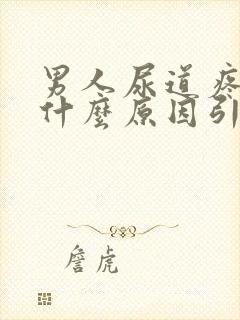 男人尿道疼
什麼原因引
詹虎